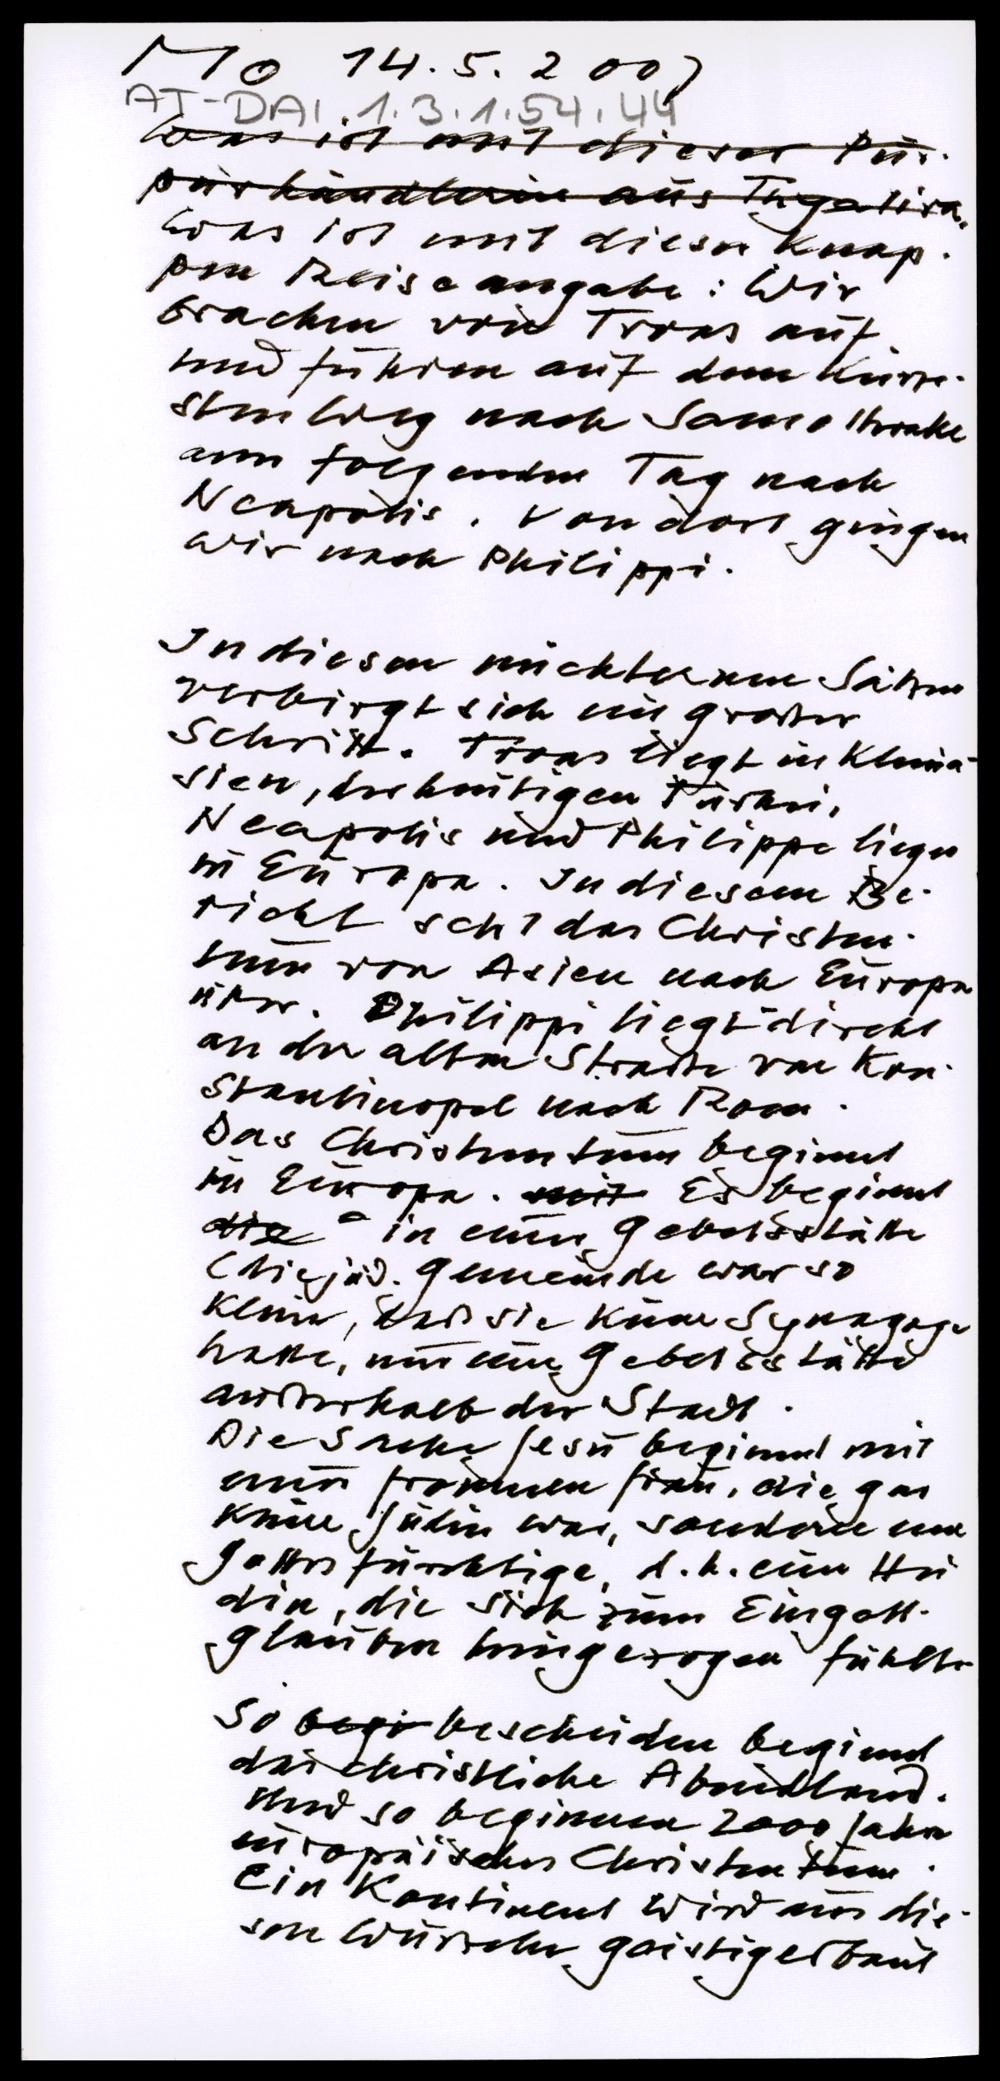 Mo 14.5.2007
AT-DAI.1.3.1.54.44
Was ist mit dieser Pur-
purhändlerin aus Thyatira.
Was ist mit dieser knap-
pen Reiseangabe: Wir
brachen von Troas auf
und fuhren auf dem kürze-
sten Weg nach Samothrake
am folgenden Tag nach
Neapolis. Von dort gingen
wir nach Philippi.
In diesen nüchternen Sätzen
verbirgt sich ein großer
Schritt. Troas liegt in Kleina-
sien, der heutigen Türkei,
Neapolis und Philippi liegen
in Europa. In diesem Be-
richt setzt das Christen-
tum von Asien nach Europa
über. Philippi liegt direkt
an der alten Straße von Kon-
stantinopel nach Rom.
Das Christentum beginnt
in Europa. mit Es beginnt
die in einer Gebetsstätte
(die jüd. Gemeinde war so
klein, daß sie keine Synagoge
hatte, nur eine Gebetsstätte
außerhalb der Stadt.
Die Sache Jesu beginnt mit
einer frommen Frau, die gar
keine Jüdin war, sondern eine
Gottesfürchtige, d.h. eine Hei
din, die sich zum Eingott-
glauben hingezogen fühlte
So begi bescheiden beginnt
das christliche Abendland.
Und so beginnen 2000 Jahre
europäisches Christentum.
Ein Kontinent wird aus die-
sen Wurzeln geistig erbaut